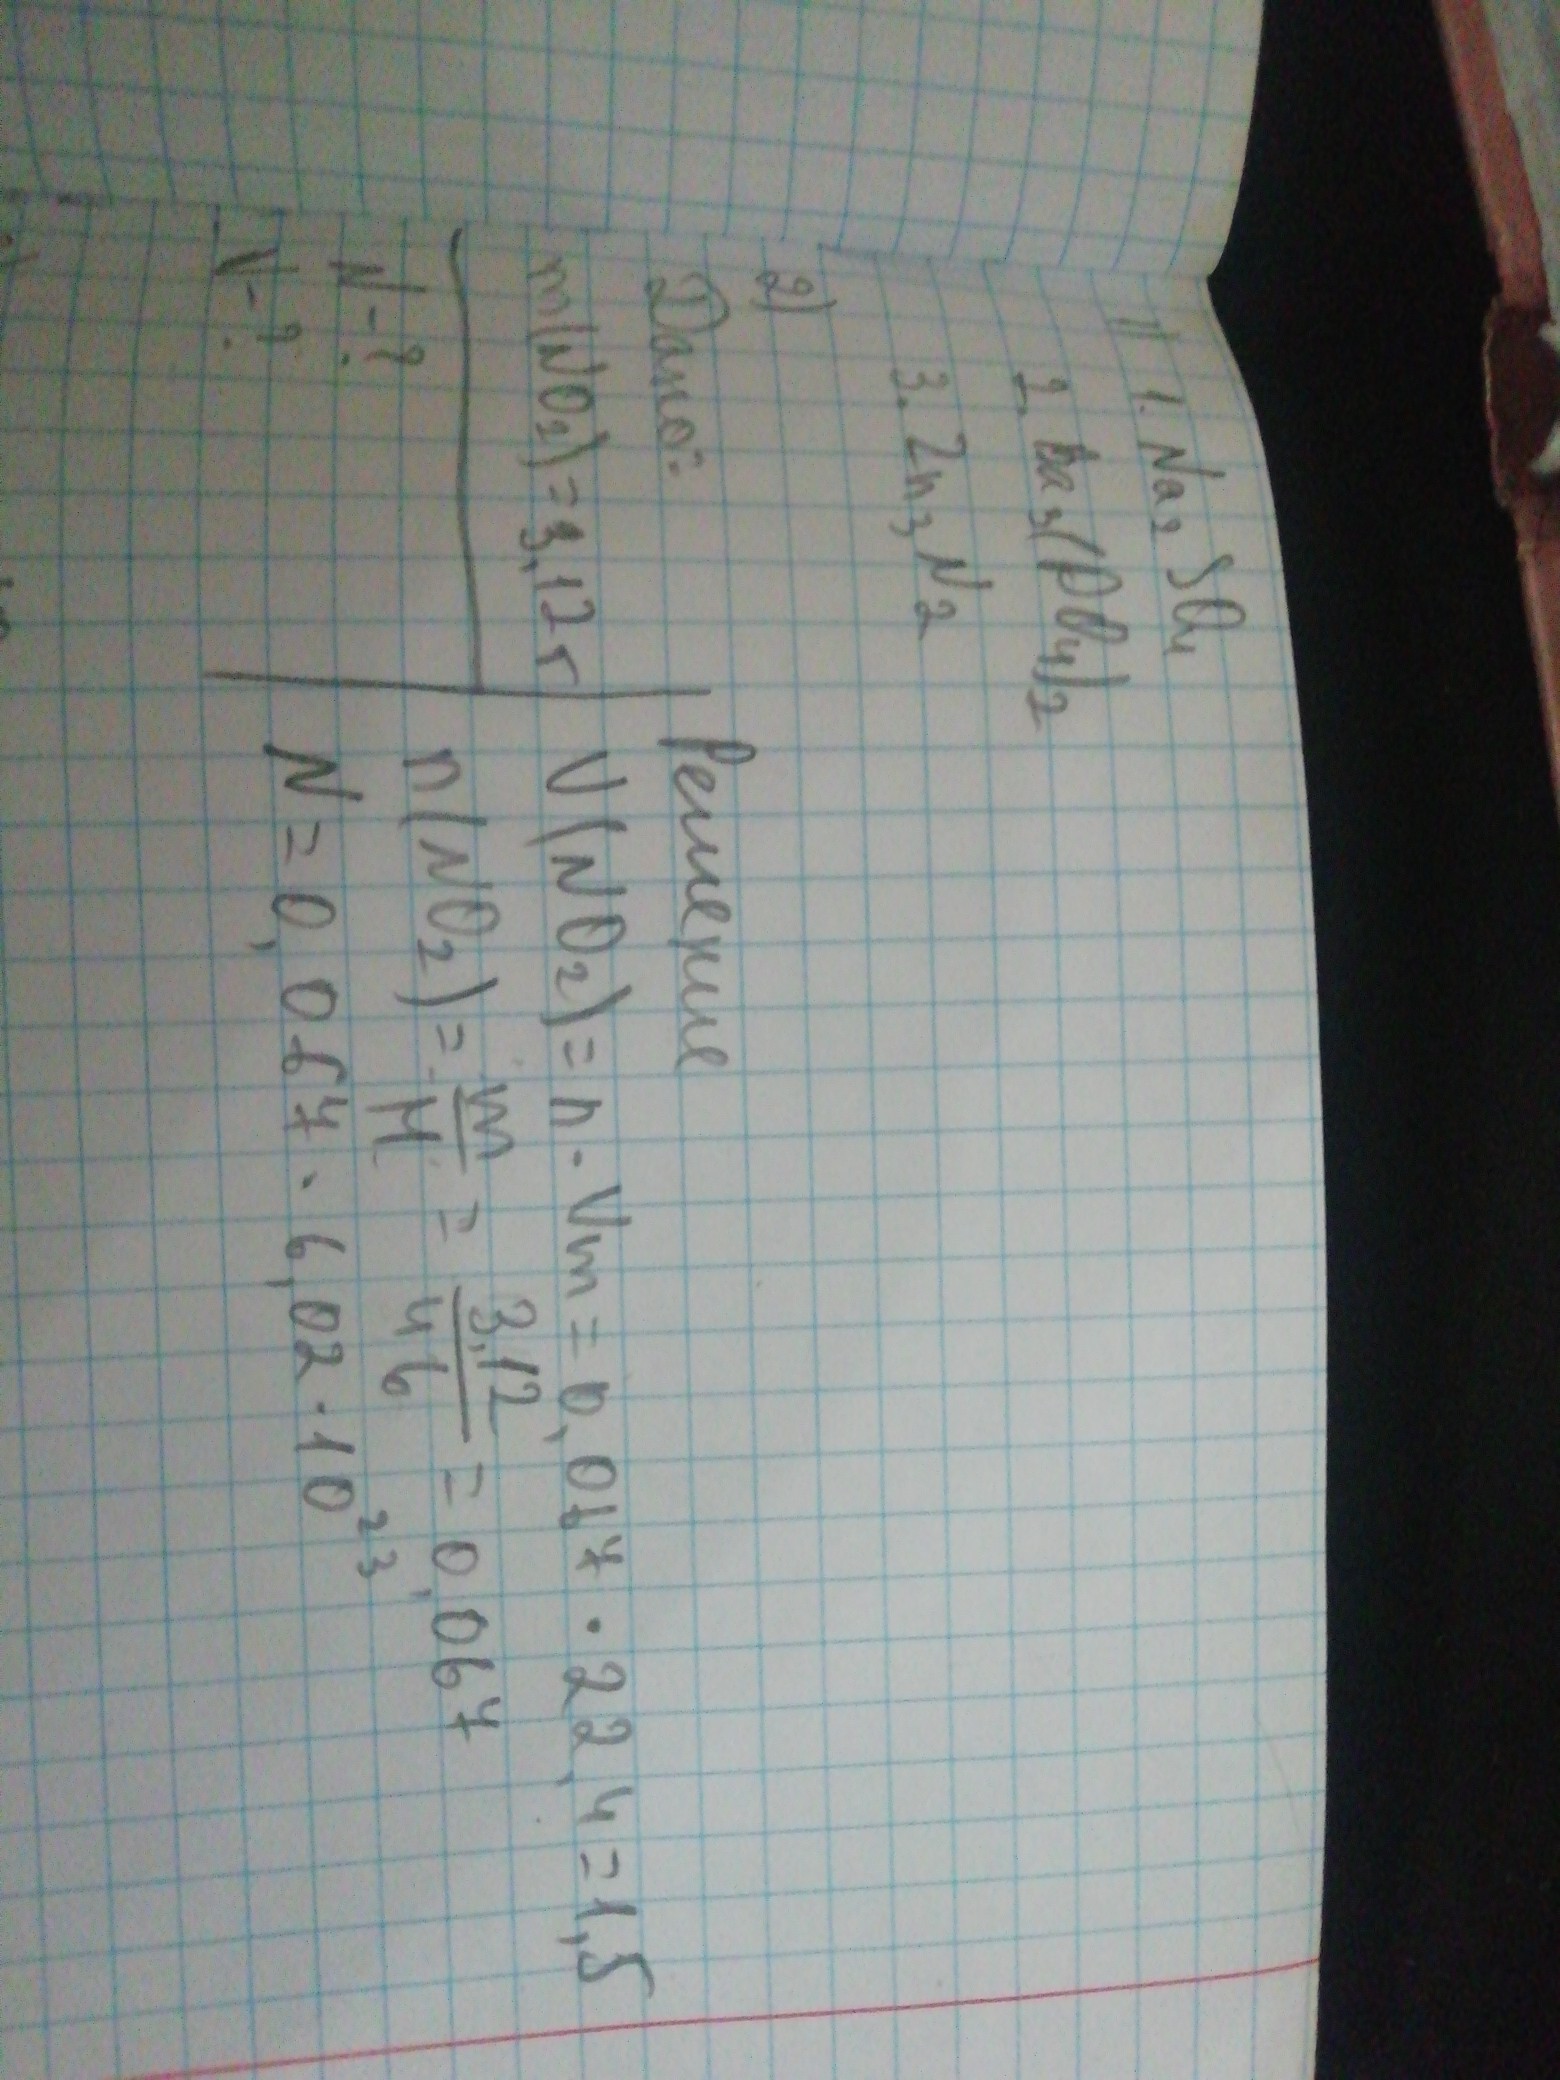 1) 1. Na₂SO₄
2. Ba₃(PO₄)₂
3. Zn₃N₂
2)
Дано:
m(NO₂)=3,12г
N-?
V-?
Решение
V(NO₂)=n·Vm=0,067·22,4=1,5
n(NO₂)=m/M=3,12/46=0,067
N=0,067·6,02·10²³